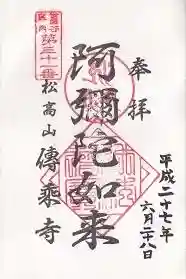 奉拝
阿彌陀如来
平成二十七年
六月二十八日
第三十一番
松高山
傳乗寺